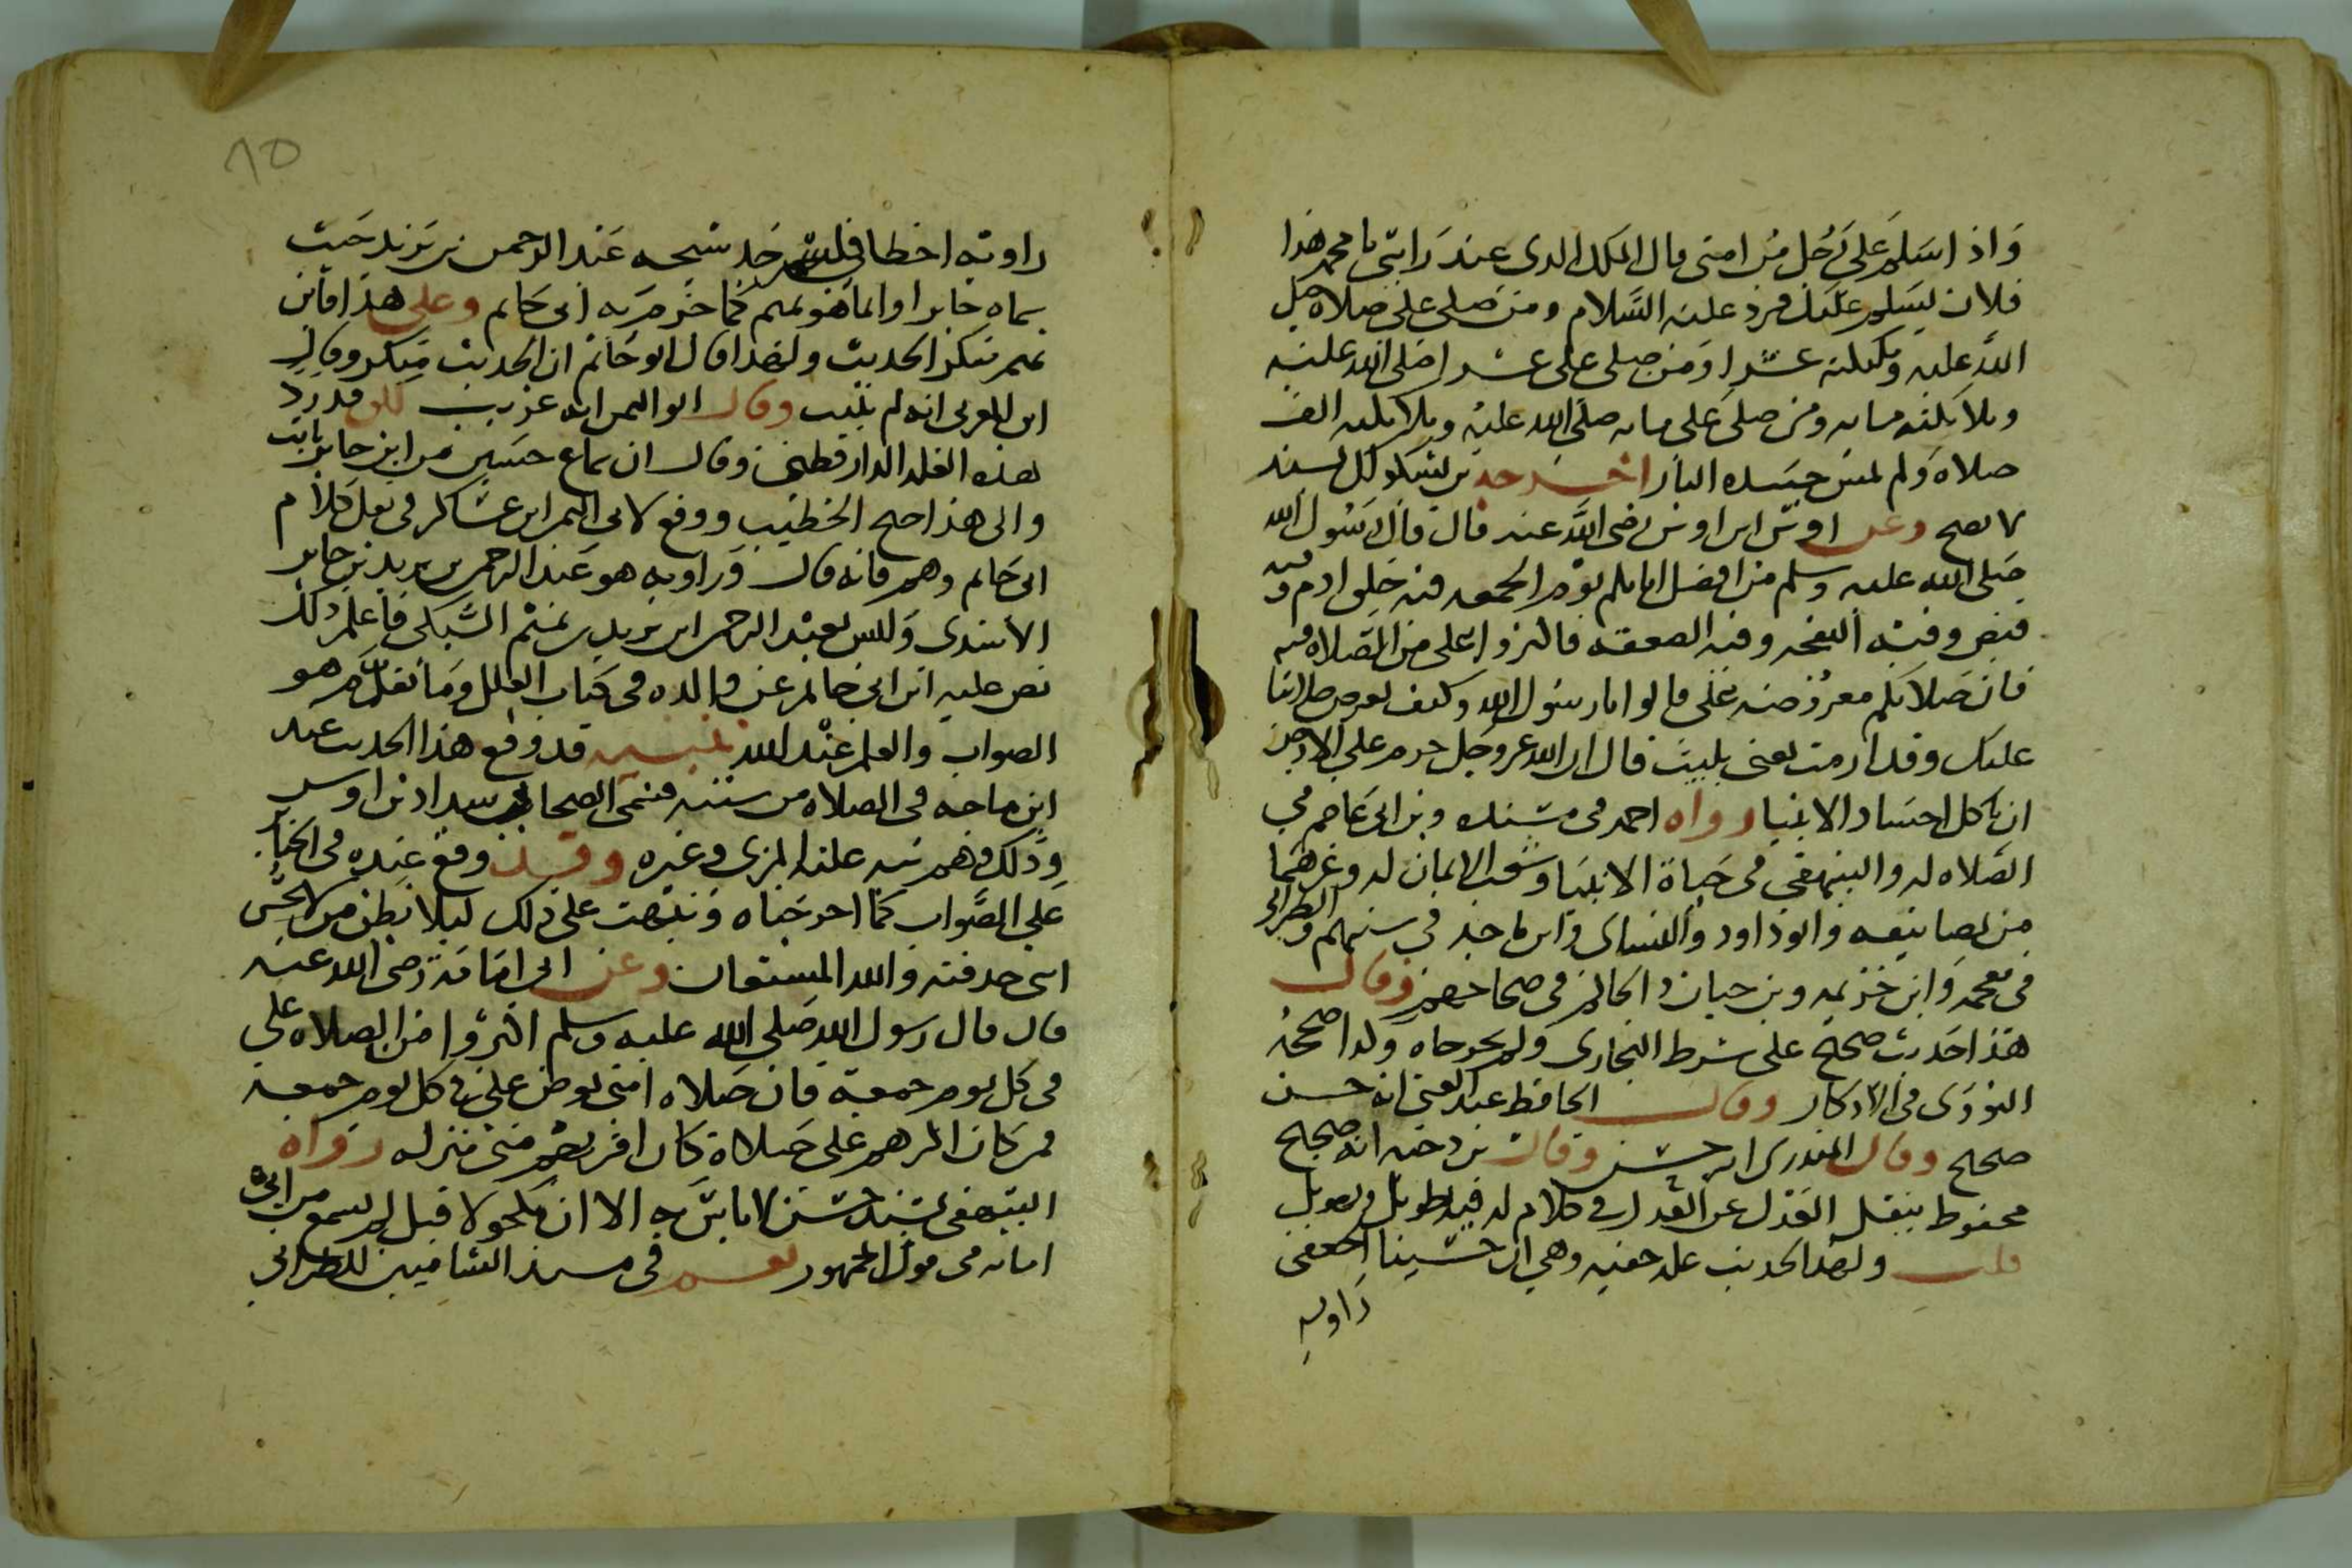 واذا سلم على رجل من امتي قال الملك الذي عند راسي يا محمد هذا
فلان يسلم عليك فرد عليه السلام ومن صلى علي صلاة صلى
الله عليه وملائكته عشرا ومن صلى علي عشرا صلى الله عليه
وملائكته مائة ومن صلى علي مائة صلى الله عليه وملائكته الف
صلاة ولم تمس جسده النار اخرجه بن بشكوال بسند
لا يصح وعن اوس ابن اوس رضي الله عنه قال قال رسول الله
صلى الله عليه وسلم من افضل ايامكم يوم الجمعة فيه خلق ادم وفيه
قبض وفيه النفخه وفيه الصعقه فاكثروا علي من الصلاة فيه
فان صلاتكم معروضة علي قالوا يا رسول الله وكيف تعرض صلاتنا
عليك وقد ارمت يعني بليت قال ان الله عز وجل حرم على الارض
ان تاكل اجساد الانبيا رواه احمد في مسنده وبن ابي عاصم في
الصلاة له والبيهقي في حياة الانبيا وشعب الايمان له وغيرهما
من تصانيفه وابو داود والنساي وابن ماجه في سننهم والطبراني
في معجمه وابن خزيمه وبن حبان والحاكم في صحاحهم وقال
هذا حديث صحيح على شرط البخاري ولم يخرجاه وكذا صححه
النووي في الاذكار وقال الحافظ عبد الغني انه حسن
صحيح وقال المنذري انه حسن وقال بن دحيه انه صحيح
محفوظ بنقل العدل عن العدل في كلام له فيه طويل وتهويل
قلت ولهذا الحديث علة خفيه وهي ان حسينا الجعفي
راويه
٨٥
راويه اخطا في اسم جد شيخه عبد الرحمن بن يزيد حيث
سماه جابرا وانما هو تميم كما جزم به ابي حاتم وعلى هذا فابن
تميم منكر الحديث ولهذا قال ابو حاتم ان الحديث منكر وقال
ابن العربي انه لم يثبت وقال ابو اليمن انه غريب لكن قد رد
هذه العلة الدارقطني وقال ان سماع حسين من ابن جابر ثابت
والى هذا جنح الخطيب ووقع لابي اليمن ابن عساكر في نقل كلام
ابي حاتم وهم فانه قال وراويه هو عبد الرحمن بن يزيد بن جابر
الاسدي وليس بعبد الرحمن ابن يزيد بن تميم الشبكي فاعلم ذلك
نص عليه ابن ابي حاتم عن والده في كتاب العلل وما نقل هو
الصواب والعلم عند الله تنبيه قد وقع هذا الحديث عند
ابن ماجه في الصلاة من سننه فسمى الصحابي شداد بن اوس
وذلك وهم نبه عليه المزي وغيره وقد وقع عنده في الجنائز
على الصواب كما اخرجناه ونبهت على ذلك ليلا يظن من لا يحس
انني حدفته والله المستعان وعن ابي امامة رضي الله عنه
قال قال رسول الله صلى الله عليه وسلم اكثروا من الصلاة علي
في كل يوم جمعة فان صلاة امتي تعرض علي في كل يوم جمعة
فمن كان اكثرهم علي صلاة كان اقربهم مني منزلة رواه
البيهقي بسند حسن لا باس به الا ان مكحولا قيل لم يسمع من ابي
امامة في قول الجمهور نعم في مسند الشاميين للطبراني